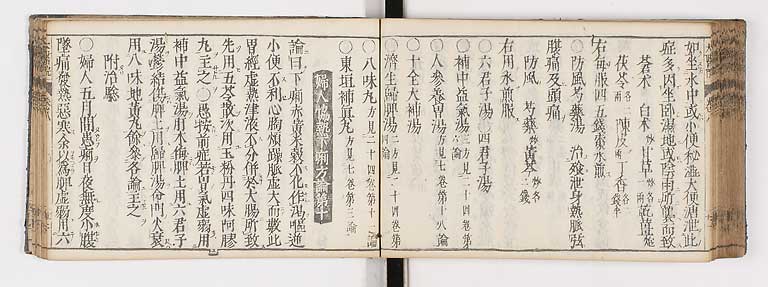 如坐水中或小便秘澁大便溏泄此
症多因坐卧濕地或陰雨所襲而致
蒼术 白术 甘草炒各一兩 乾薑炮
茯苓各一兩 陳皮 丁香各錢半
右每服四五錢棗水煎
○防風芍藥湯 治發泄身熱脈弦
腹痛及頭痛
防風 芍藥 黄芩
右用水煎服
○六君子湯 四君子湯
○補中益氣湯三方見二十四卷第六論
○人參養胃湯方見七卷第十八論
○十全大補湯
○濟生歸脾湯二方見二十四卷第
○八味丸方見二十四卷第十一論
○東垣補眞丸方見七卷第三論
婦人協熱下痢方論第十
論曰下痢赤黄米穀不化作渴嘔逆
小便不利心胸煩躁脈虚大而數此
胃經虚熱津液不分併於大腸所致
先用五苓散次用玉粉丹四味阿膠
丸主之○愚按前症若胃氣虚弱用
補中益氣湯
用八味地黄丸餘參各論主之
附治驗
○婦人五月間患痢日夜無度小腹
墜痛發熱惡寒余以爲脾虚弱用六